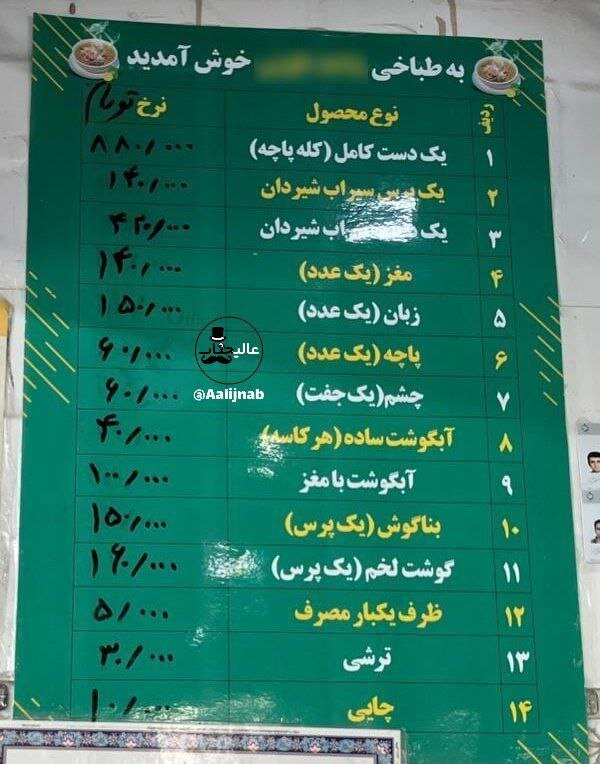 به طباخی خوش آمدید
ردیف نوع محصول نرخ تومان
۱ یک دست کامل (کله پاچه) ۸۸۰/۰۰۰
۲ یک پرس سیراب شیردان ۱۴۰/۰۰۰
۳ یک سیراب شیردان ۴۲۰/۰۰۰
۴ مغز (یک عدد) ۱۴۰/۰۰۰
۵ زبان (یک عدد) ۱۵۰/۰۰۰
۶ پاچه (یک عدد) ۶۰/۰۰۰
۷ چشم(یک جفت) ۶۰/۰۰۰
۸ آبگوشت ساده (هر کاسه) ۴۰/۰۰۰
۹ آبگوشت با مغز ۱۰۰/۰۰۰
۱۰ بناگوش (یک پرس) ۱۵۰/۰۰۰
۱۱ گوشت لخم (یک پرس) ۱۶۰/۰۰۰
۱۲ ظرف یکبار مصرف ۵/۰۰۰
۱۳ ترشی ۳۰/۰۰۰
۱۴ چایی ۱۰/۰۰۰
عالیجناب
@Aalijnab